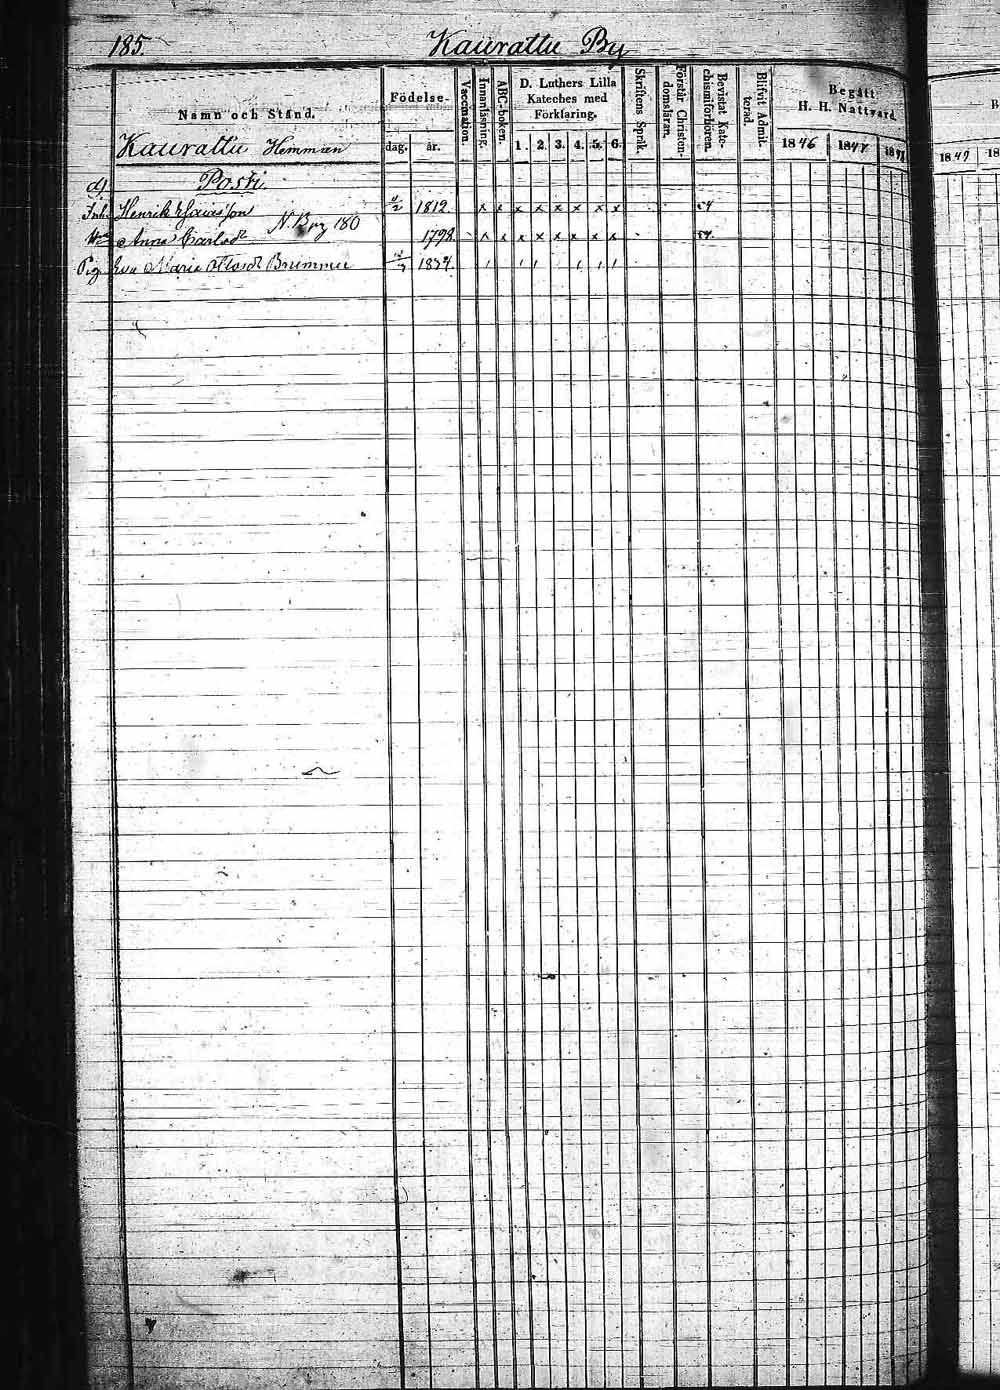 185. Kaurattu By
Namn och Stånd.
Födelse-
dag. år.
Vaccination.
Innanläsning.
ABC-boken.
D. Luthers Lilla
Kateches med
Förklaring.
1. 2. 3. 4. 5. 6.
Skriftens Språk.
Förstår Christen-
domsläran.
Bevistat Kate-
chismiförhören.
Blifvit Admit-
terad.
Begått
H. H. Nattvard.
1846 1847 1848
1849 18
Kaurattu Hemman
Poski
Inh. Henrik Esaiasson 1812. x x x x x x x x 54
N. Brg 180
Hu Anna Carlsdr 1798 x x x x x x x x 54
Pig Eva Maria Brummer 1834.